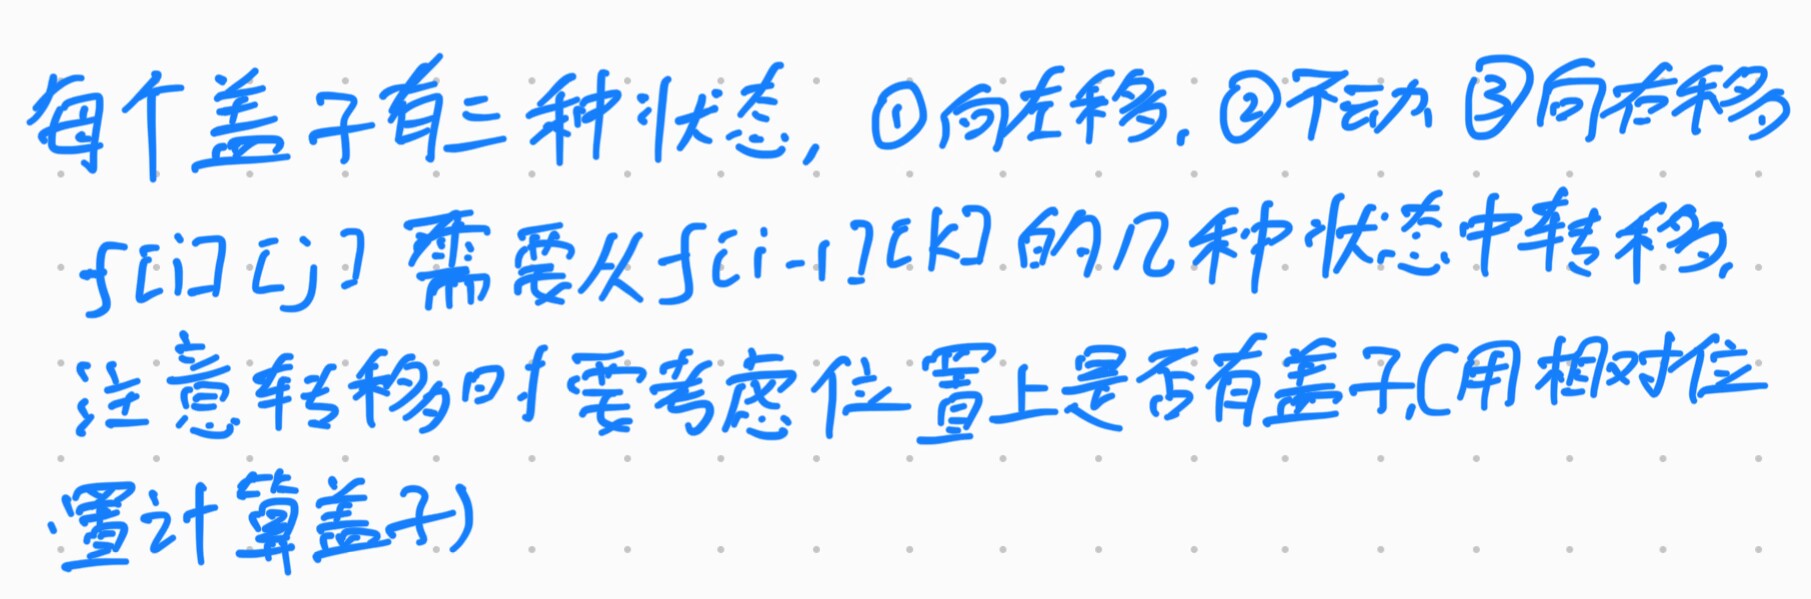 每个盖子有三种状态, ①向左移. ②不动 ③向右移
f[i][j] 需要从f[i-1][k]的几种状态中转移.
注意转移时要考虑位置上是否有盖子,(用相对位
置计算盖子)